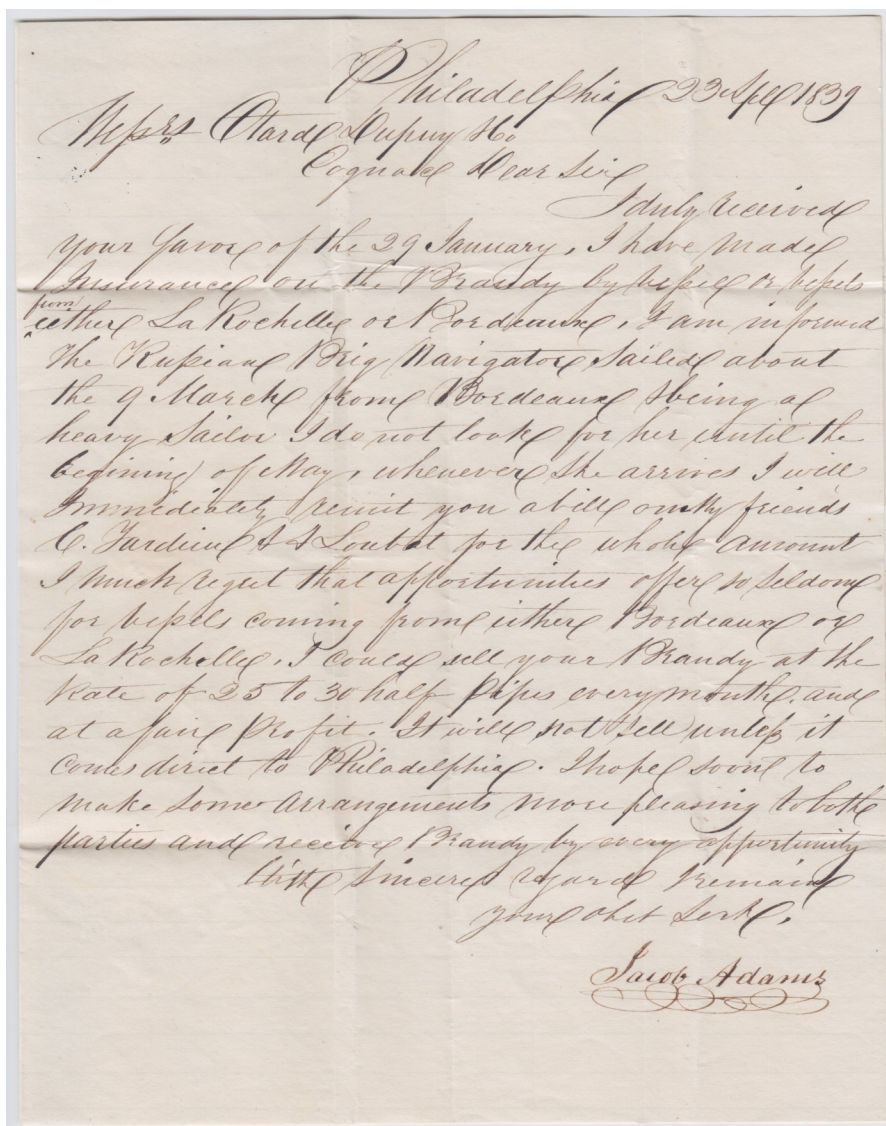 Philadelphia 23 Apl 1839
Messrs Otard Dupuy & Co
Cognac Dear Sir
I duly received
your favor of the 29 January, I have made
Insurance on the Brandy by vessel or vessels
from
either La Rochelle or Bordeaux, I am informed
the Russian Brig Navigator Sailed about
the 9 March from Bordeaux & being a
heavy Sailor I do not look for her until the
begining of May, whenever she arrives I will
Immediately remit you a bill on My friends
C. Tardieu & J Loubat for the whole amount
I much regret that apportunities offer so seldom
for vessels coming from either Bordeaux or
La Rochelle, I could sell your Brandy at the
Rate of 25 to 30 half Pipes every month, and
at a fair Profit. It will not Sell unless it
comes direct to Philadelphia. I hope soon to
make some Arrangements more pleasing to both
parties and receive Brandy by every apportunity
With Sincere regard I remain
your obet Servt,
Jacob Adams